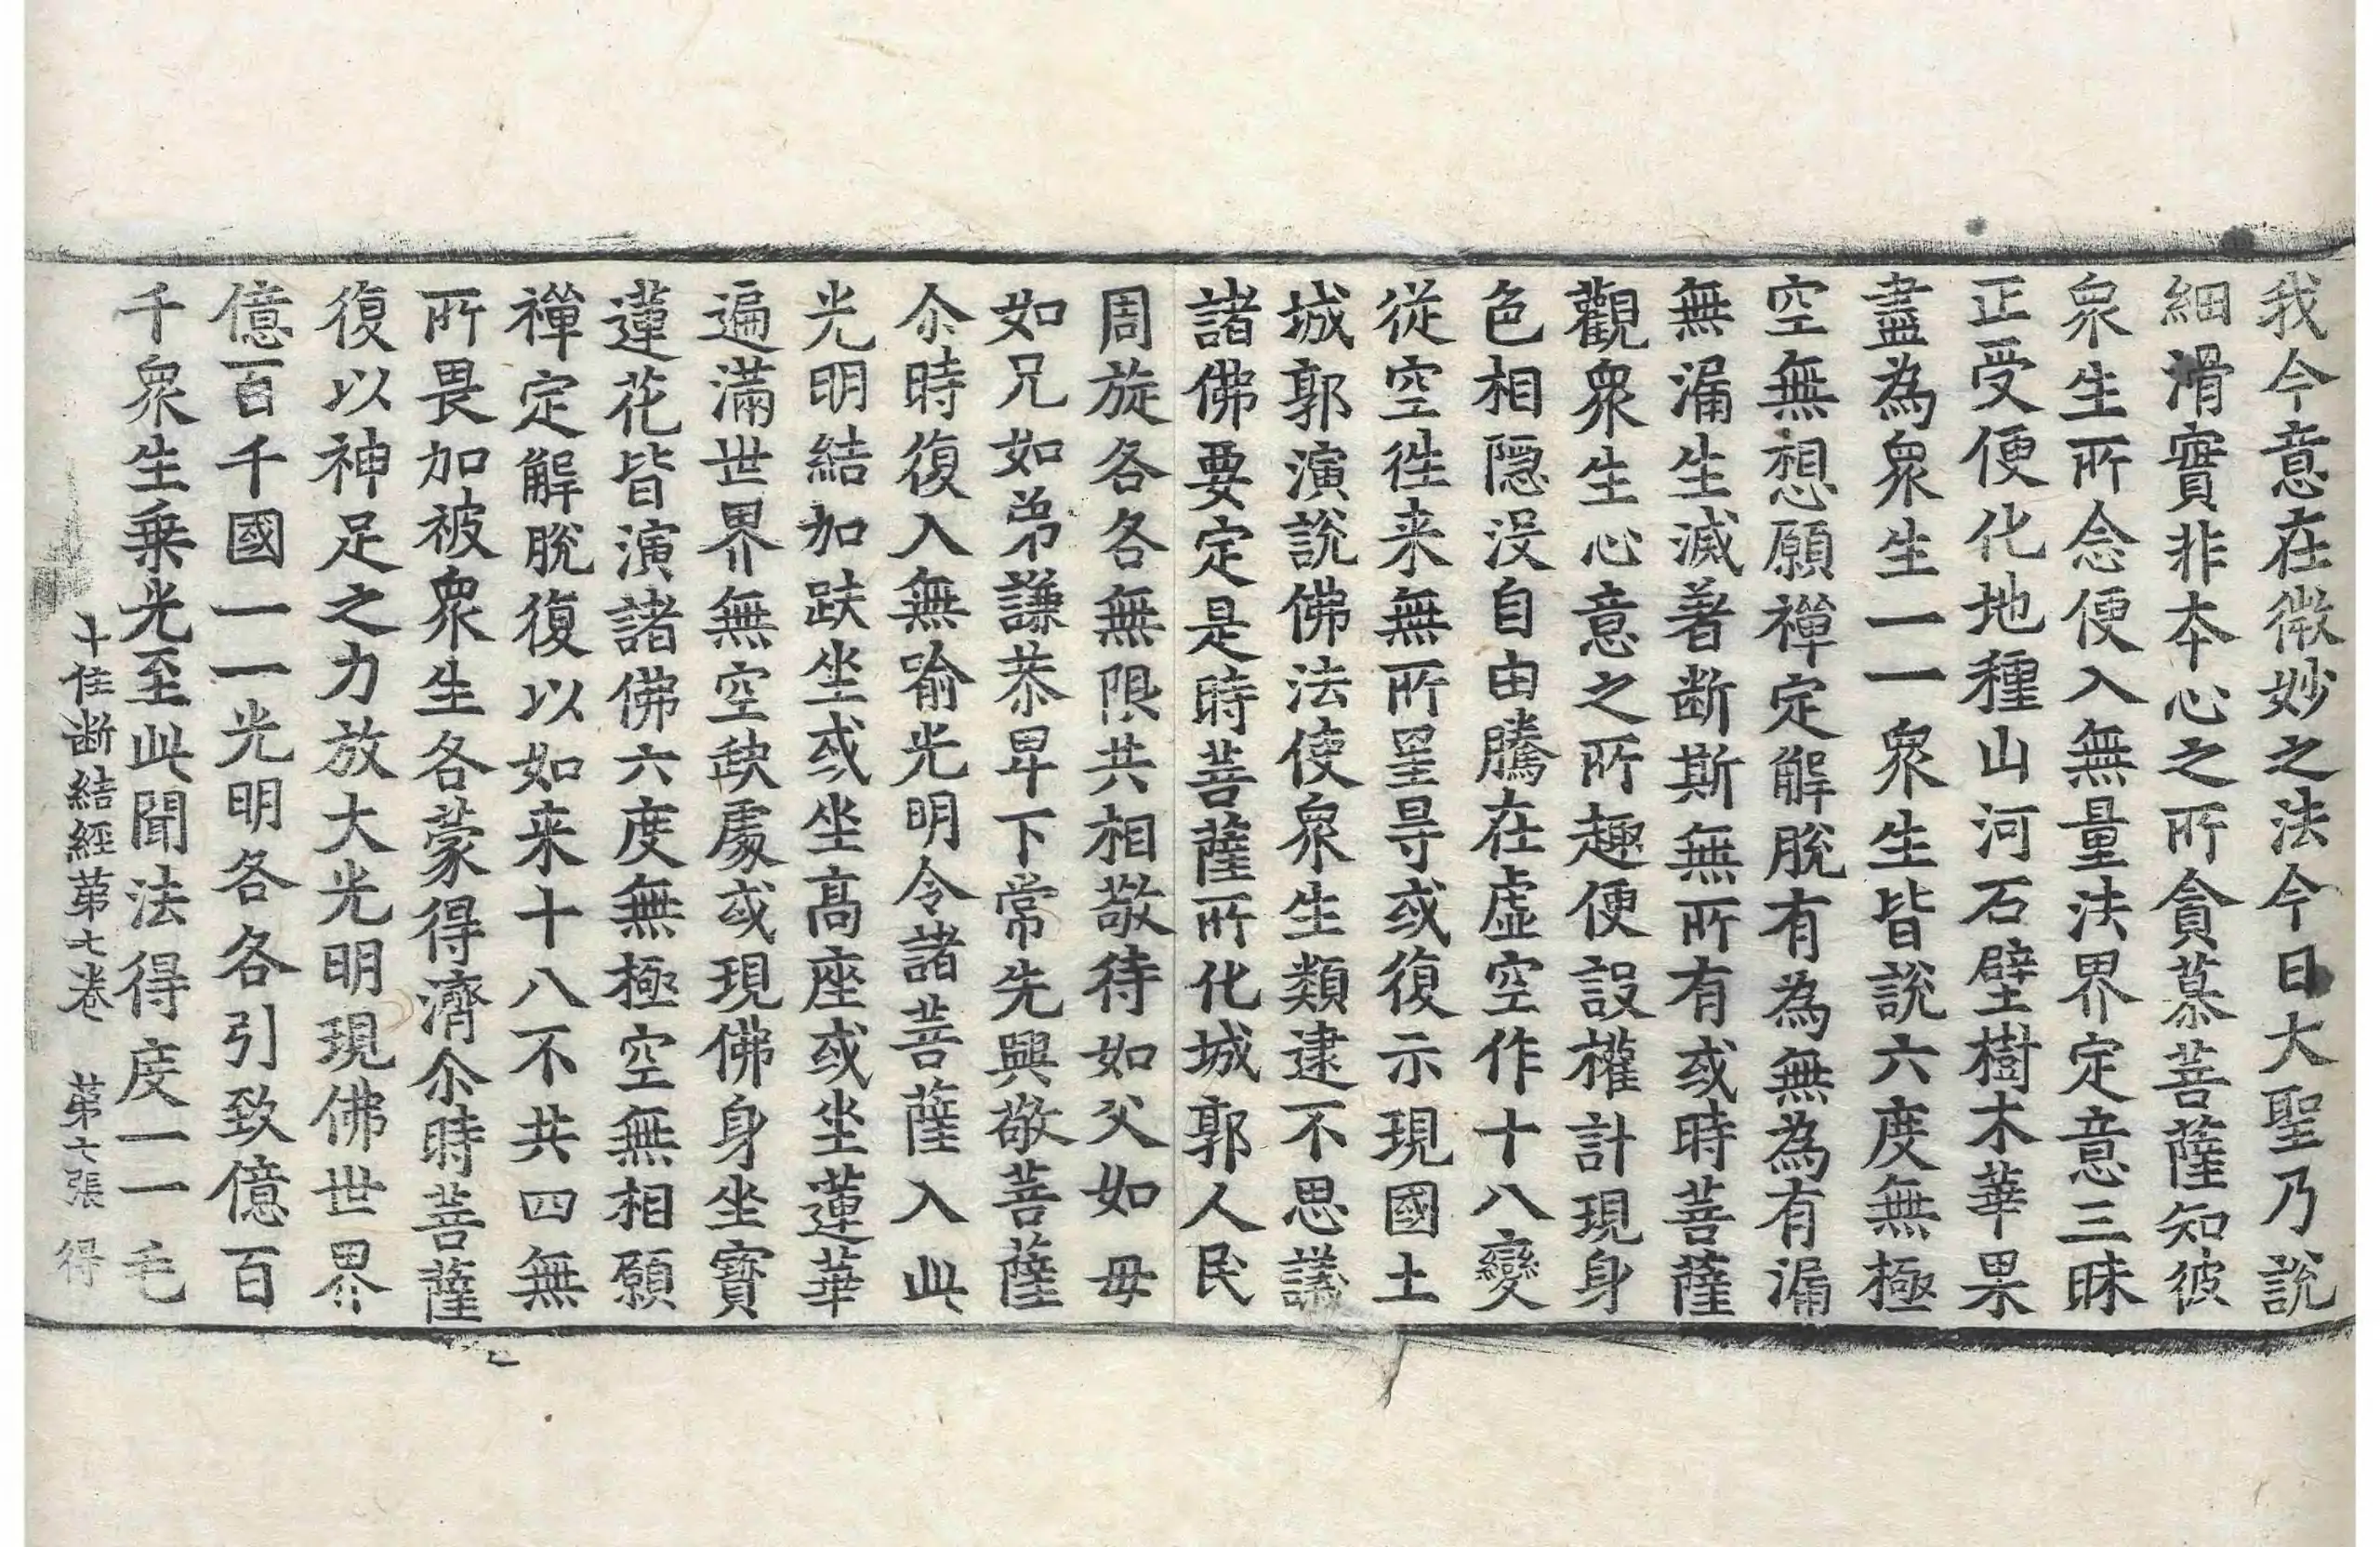 我今意在微妙之法今日大聖乃說
細滑實非本心之所貪慕菩薩知彼
衆生所念便入無量法界定意三昧
正受便化地種山河石壁樹木華果
盡為衆生一一衆生皆說六度無極
空無想願禪定解脫有為無為有漏
無漏生滅著断斯無所有或時菩薩
觀衆生心意之所趣便設權計現身
色相隱沒自由騰在虛空作十八變
從空徃来無所罣㝵或復示現國土
城郭演說佛法使衆生類逮不思議
諸佛要定是時菩薩所化城郭人民
周旋各各無限共相敬待如父如母
如兄如弟謙恭卑下常先興敬菩薩
尒時復入無喻光明令諸菩薩入此
光明結加趺坐或坐高座或坐蓮華
遍滿世界無空缺處或現佛身坐寶
蓮花皆演諸佛六度無極空無相願
禪定解脫復以如来十八不共四無
所畏加被衆生各蒙得濟尒時菩薩
復以神足之力放大光明現佛世界
億百千國一一光明各各引致億百
千衆生乗光至此聞法得度一一毛
十住断結經苐七卷　苐七張　得